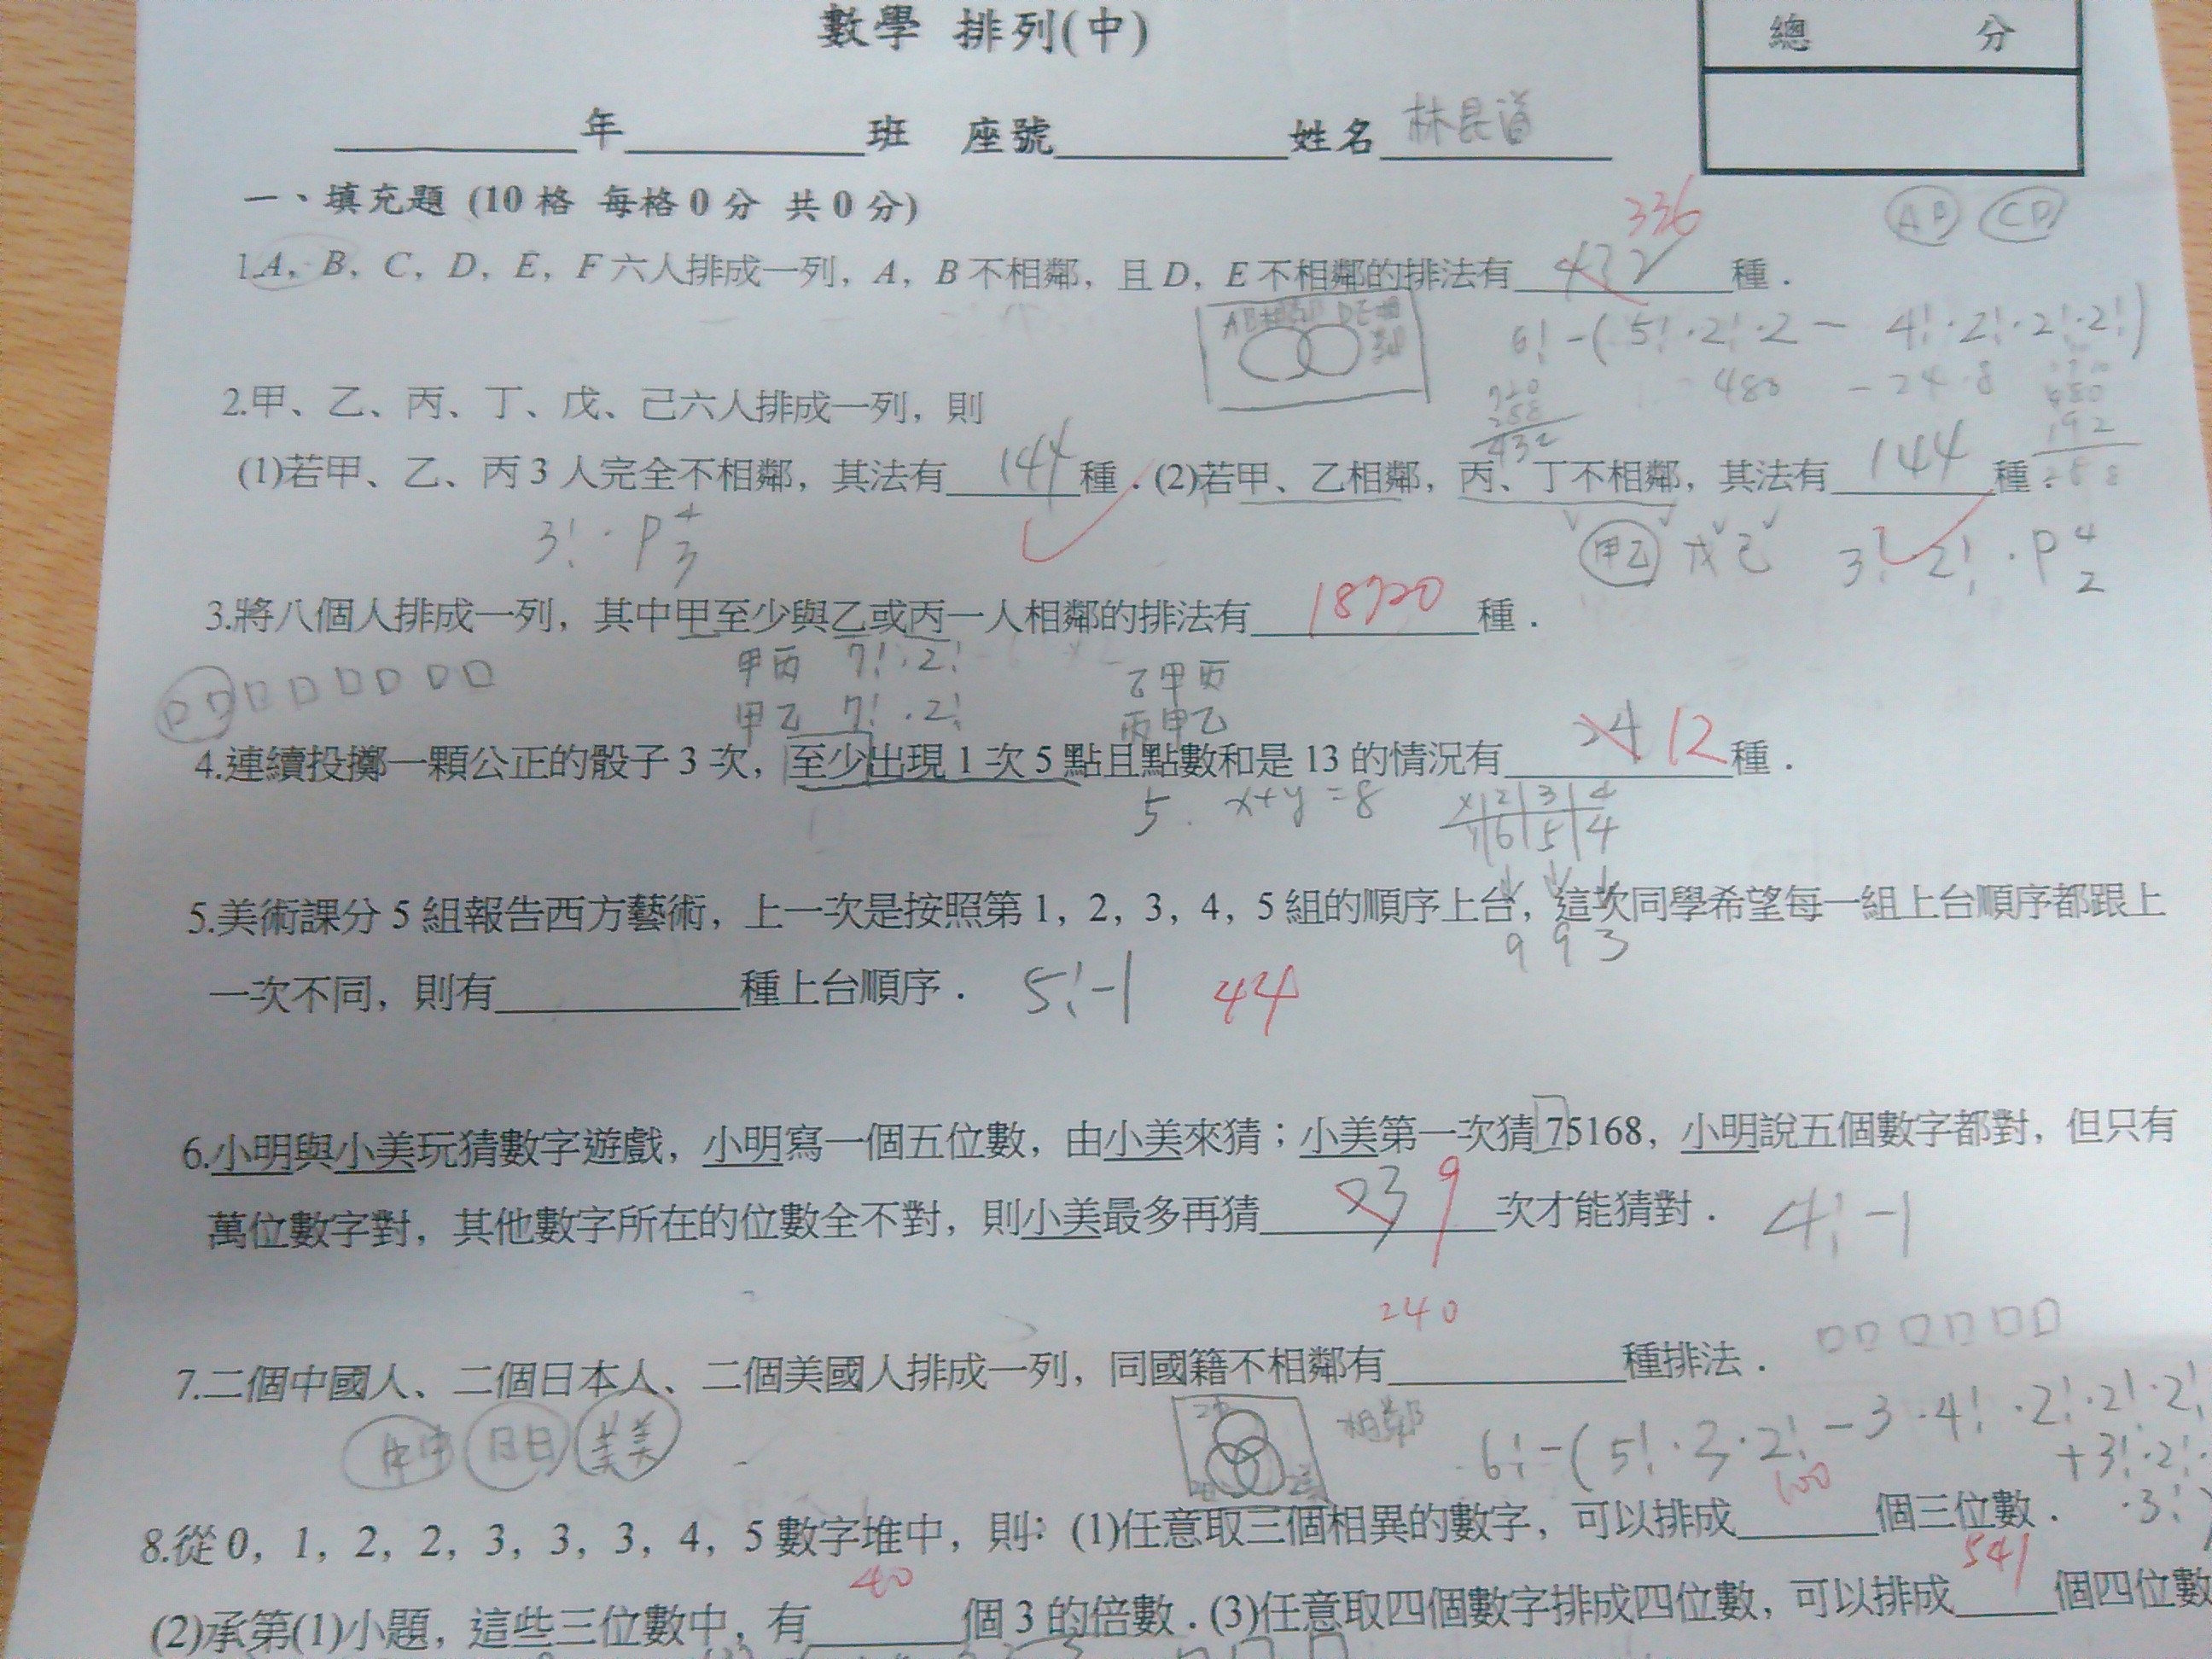 數學 排列(中)
總 分
年 班 座號 姓名 林昆道
一、填充題 (10 格 每格 0 分 共 0 分)
336
AB CD
1.A，B，C，D，E，F 六人排成一列，A，B 不相鄰，且 D，E 不相鄰的排法有 432 種．
AB相鄰 DE相鄰
6!-(5!·2!·2 - 4!·2!·2!·2!)
480 - 24·8
720
288
432
480
192
288
2.甲、乙、丙、丁、戊、己六人排成一列，則
(1)若甲、乙、丙 3 人完全不相鄰，其法有 144 種．(2)若甲、乙相鄰，丙、丁不相鄰，其法有 144 種．
3!·P 4 3
甲乙 戊 己 3! 2!·P 4 2
3.將八個人排成一列，其中甲至少與乙或丙一人相鄰的排法有 18720 種．
甲丙 7!·2! 乙甲丙
甲乙 7!·2! 丙甲乙
4.連續投擲一顆公正的骰子 3 次，至少出現 1 次 5 點且點數和是 13 的情況有 24 12 種．
5. x+y=8
x 2 3 4
y 6 5 4
5.美術課分 5 組報告西方藝術，上一次是按照第 1，2，3，4，5 組的順序上台，這次同學希望每一組上台順序都跟上
9 9 3
一次不同，則有 種上台順序． 5!-1 44
6.小明與小美玩猜數字遊戲，小明寫一個五位數，由小美來猜；小美第一次猜 75168，小明說五個數字都對，但只有
萬位數字對，其他數字所在的位數全不對，則小美最多再猜 23 9 次才能猜對． 4!-1
240
7.二個中國人、二個日本人、二個美國人排成一列，同國籍不相鄰有 種排法．
中中 日日 美美
相鄰
6!-(5!·3·2!-3·4!·2!·2!·2!
+3!·2!·
·3!)
100
8.從 0，1，2，2，3，3，3，4，5 數字堆中，則：(1)任意取三個相異的數字，可以排成 個三位數．
40 541
(2)承第(1)小題，這些三位數中，有 個 3 的倍數．(3)任意取四個數字排成四位數，可以排成 個四位數